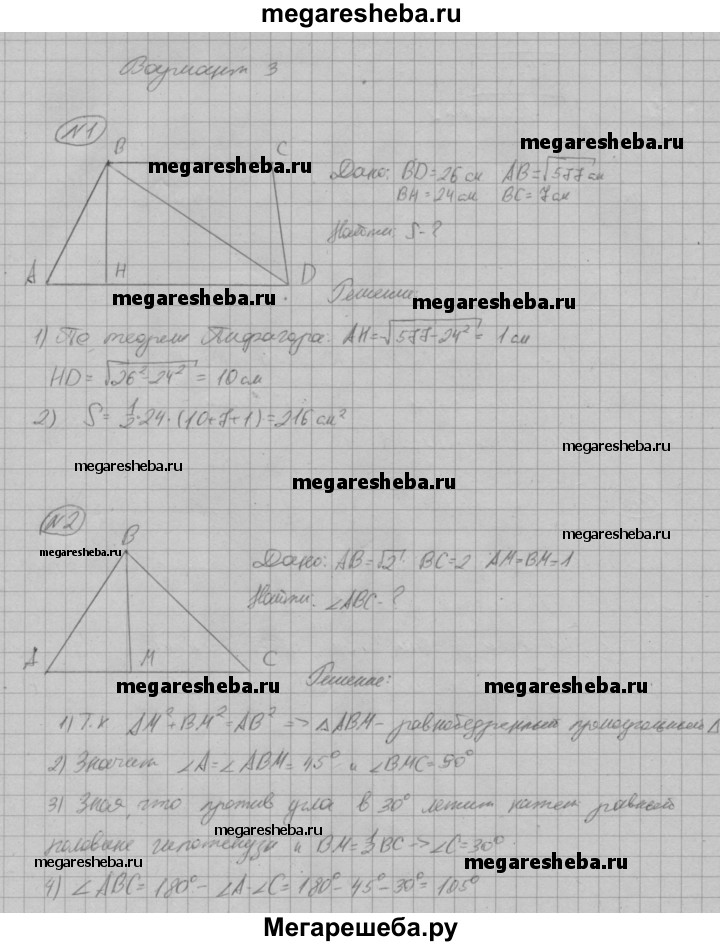 megaresheba.ru
Вариант 3
№1
megaresheba.ru
B C
megaresheba.ru
Дано: BD=26 см AB=√577 см
BH=24 см BC=7 см
Найти: S-?
A H D
megaresheba.ru
Решение:
megaresheba.ru
1) По теореме Пифагора: AH=√577-24² = 1 см
HD= √26²-24² = 10 см
2) S= 1/2·24·(10+7+1)=216 см²
megaresheba.ru
megaresheba.ru
№2
megaresheba.ru
B
megaresheba.ru
Дано: AB=√2 BC=2 AM=BM=1
Найти: ∠ABC-?
A M C
Решение:
megaresheba.ru
megaresheba.ru
1) Т.к AM²+BM²=AB² => △ABM- равнобедренный прямоугольный △
2) Значит ∠A=∠ABM=45° и ∠BMC=90°
3) Зная, что против угла в 30° лежит катет равный
megaresheba.ru
половине гипотенузы и BM=1/2BC → ∠C=30°
megaresheba.ru
megaresheba.ru
4) ∠ABC= 180°- ∠A-∠C=180°-45°-30°=105°
Мегарешеба.ру